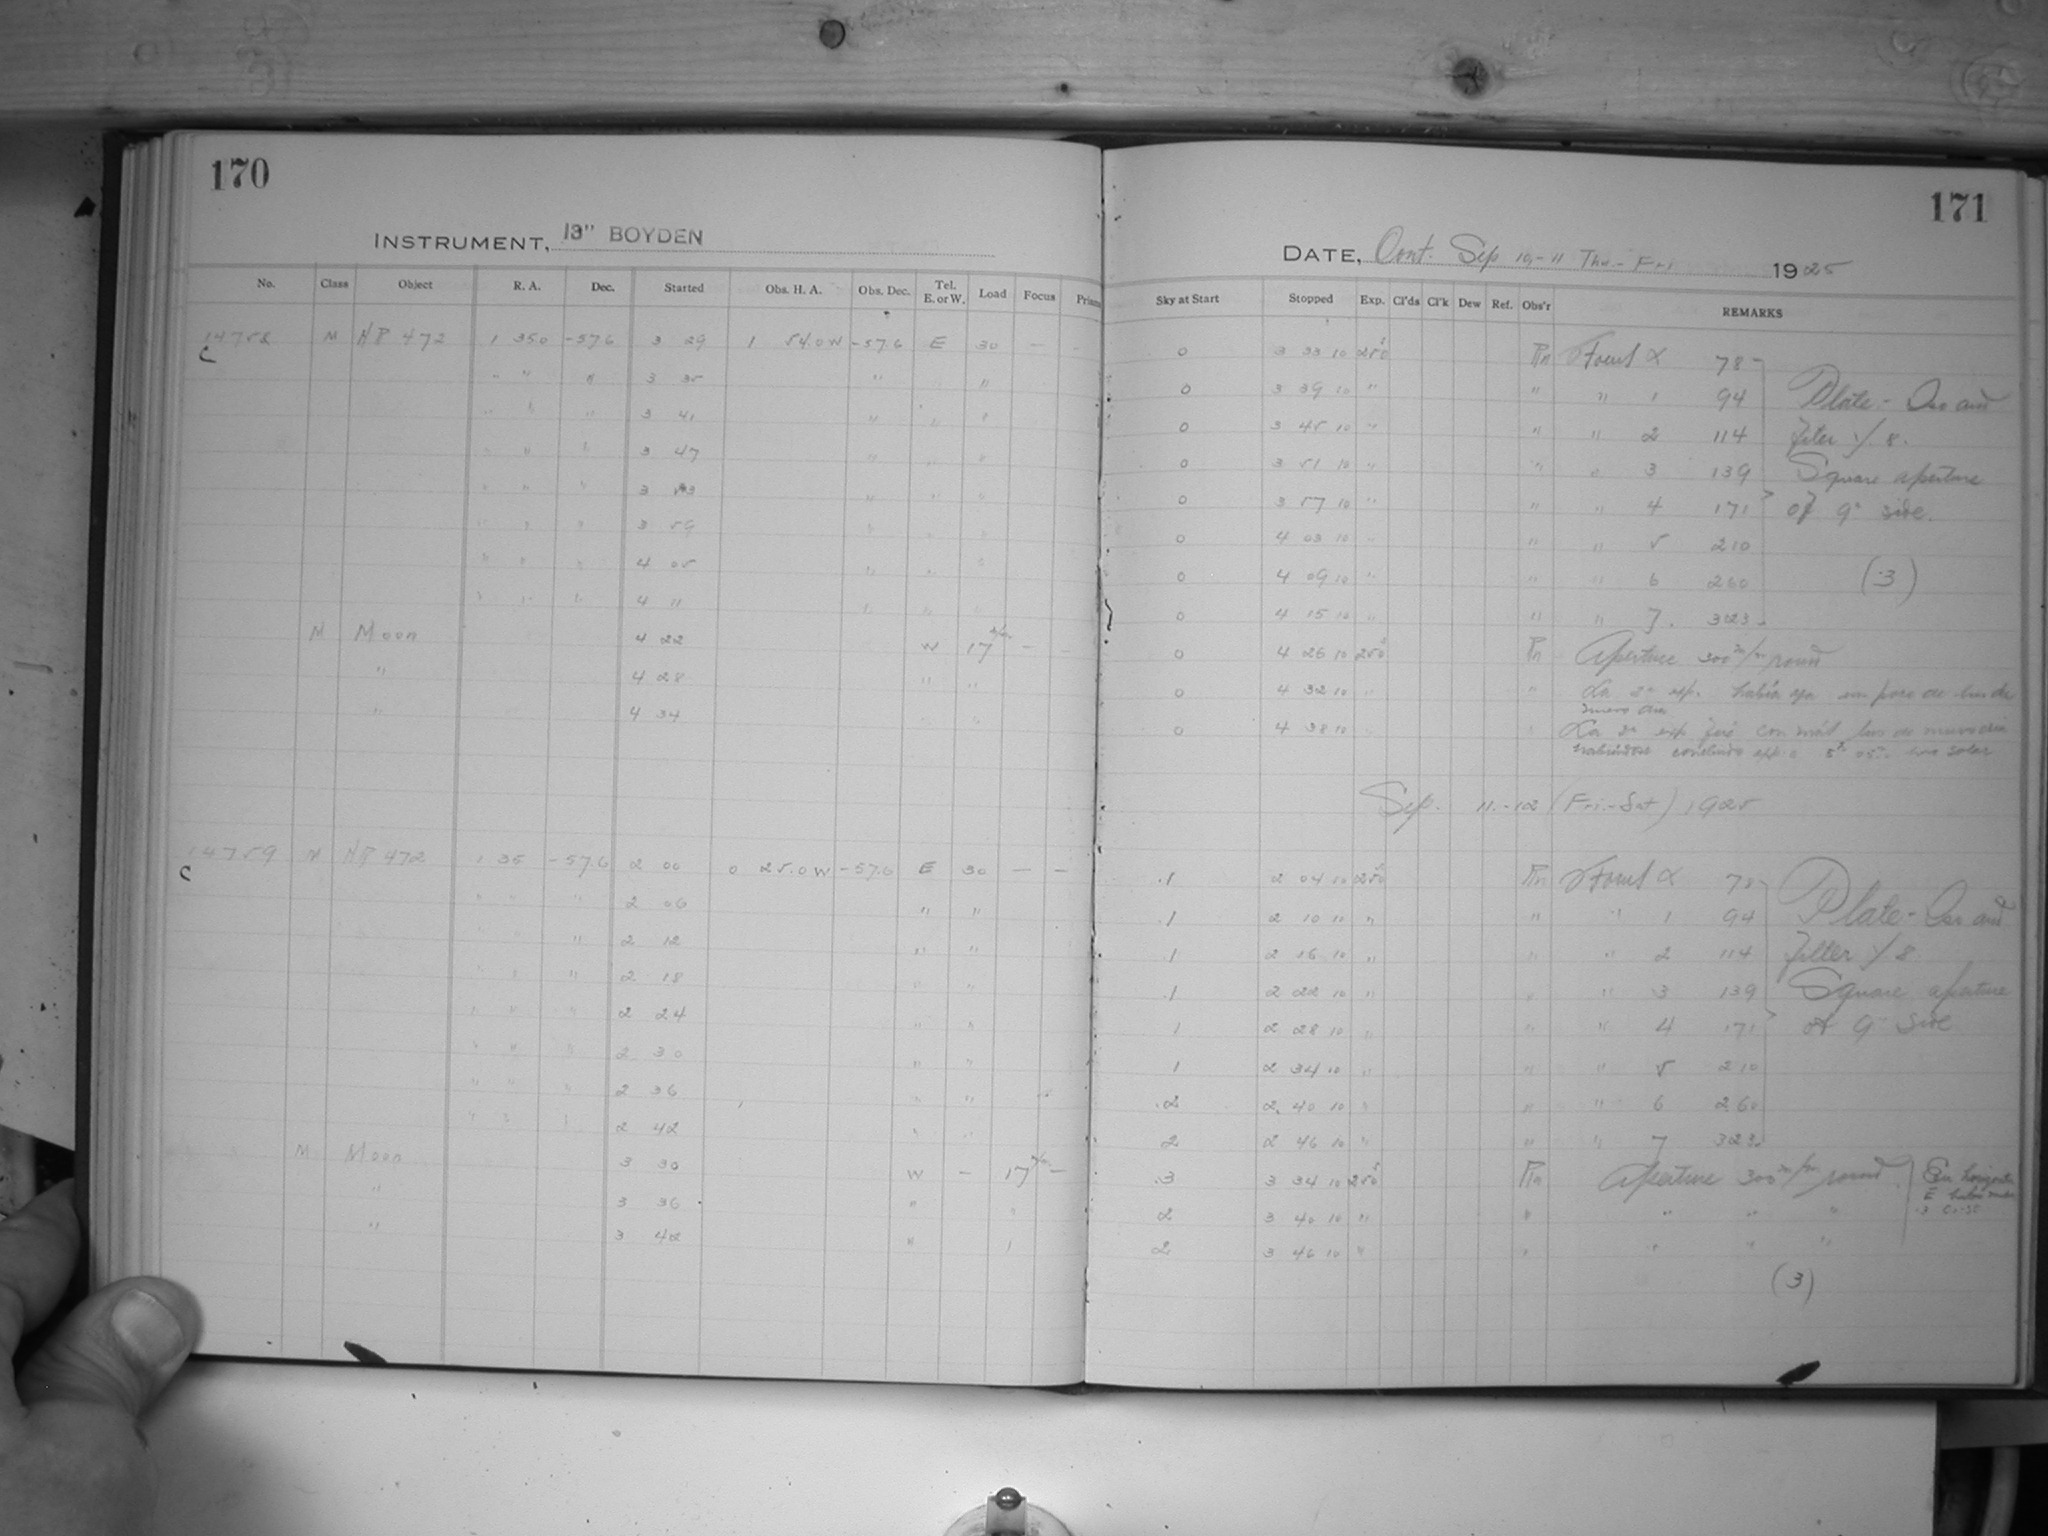 170
INSTRUMENT, 13" BOYDEN
No. Class Object R. A. Dec. Started Obs. H. A. Obs. Dec. Tel. E. or W. Load Focus
14758 M HP 472 1 35.0 -57.6 3 29 1 54.0 W -57.6 E 30 —
C
" " " 3 35 " "
" " " 3 41 " " "
" " " 3 47 " " "
" " " 3 53 " " "
" " " 3 59 " " "
" " " 4 05 " " "
" " " 4 11 " " "
M Moon 4 22 W 17 —
" 4 28 " "
" 4 34 "
14759 M HP 472 1 35 -57.6 2 00 0 25.0 W -57.6 E 30 — —
C
" " " 2 06 " "
" 2 12 " "
" " " 2 18 " "
" " " 2 24 " "
" " " 2 30 " "
" " " 2 36 " "
" " " 2 42 " "
M Moon 3 30 W — 17 —
" 3 36 " "
" 3 42 " "
171
DATE, Cont. Sep 10-11 Thu.- Fri 1925
Sky at Start Stopped Exp. Cl'ds Cl'k Dew Ref. Obs'r REMARKS
0 3 33 10 250s 78
0 3 39 10 " " " 1 94 Plate-
0 3 45 10 " " " 2 114
0 3 51 10 " " " 3 139 Square aperture
0 3 57 10 " " " 4 171 of 9" side.
0 4 03 10 " " " 5 210
0 4 09 10 " " " 6 260 (3)
0 4 15 10 " " " 7. 323
0 4 26 10 250s Aperture 300 m/m round
0 4 32 10 " " La 2a exp. había ya
0 4 38 10 La 3a exp fué con más luz de
solar
Sep. 11.-12 (Fri.-Sat) 1925
.1 2 04 10 250s 78
.1 2 10 10 " " " 1 94 Plate-
.1 2 16 10 " " " 2 114 filter
.1 2 22 10 " " " 3 139 Square aperture
1 2 28 10 " " " 4 171 of 9" side
1 2 34 10 " " " 5 210
.2 2 40 10 " " " 6 260
2 2 46 10 " " " 7 323
.3 3 34 10 250s Aperture 300 m/m round En horizonte
2 3 40 10 " " " " " E
2 3 46 10 " " " " "
(3)